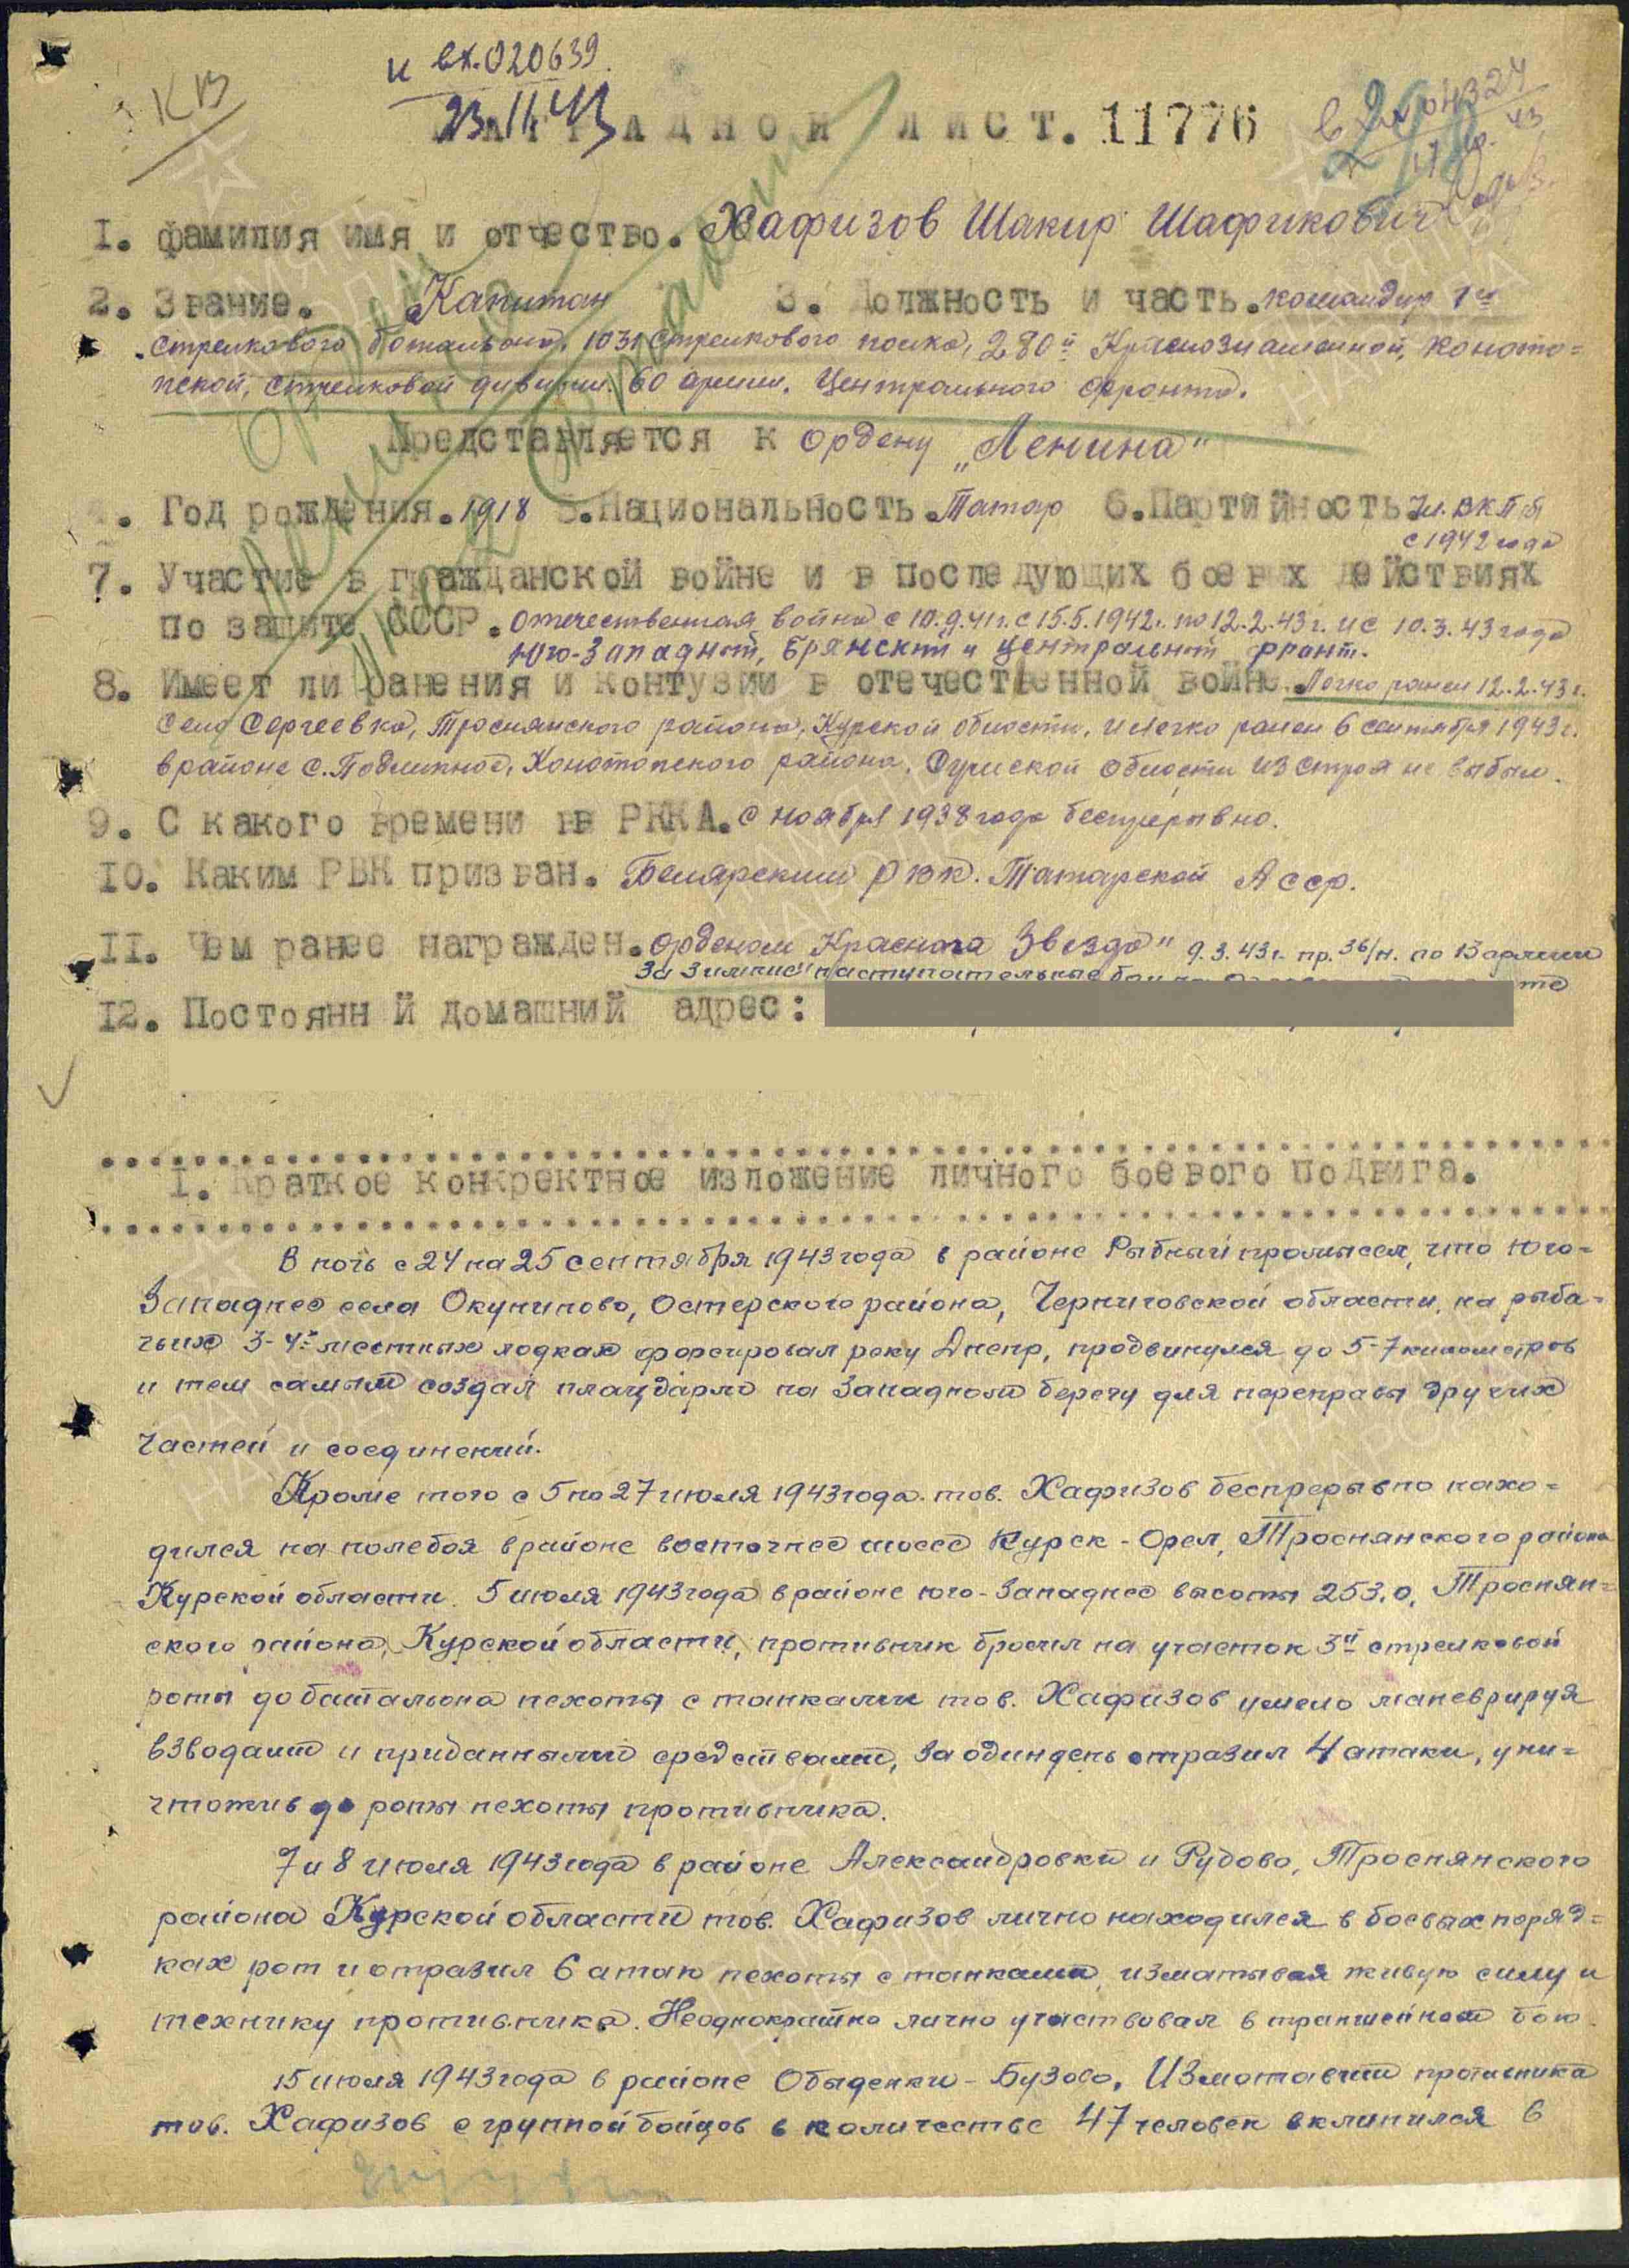 КВ
и вх. 020639
23.11.43
НАГРАДНОЙ ЛИСТ. 11776
1. Фамилия имя и отчество. Хафизов Шакир Шафикович
2. Звание. Капитан 3. Должность и часть. командир 1й
стрелкового батальона, 1031 стрелкового полка, 280й Краснознаменной, Коното=
пской, стрелковой дивизии. 60 армии. Центрального фронта.
Представляется к ордену „Ленина"
4. Год рождения. 1918 5. Национальность. Татар 6. Партийность. Чл. ВКП(б)
с 1942 года
7. Участие в гражданской войне и в последующих боевых действиях
по защите СССР. Отечественная война с 10.9.41г. с 15.5.1942г. по 12.2.43г. и с 10.3.43 года
Юго-Западный, Брянский и Центральный фронт.
8. Имеет ли ранения и контузии в отечественной войне. Легко ранен 12.2.43г.
село Сергеевка, Троснянского района, Курской области, и легко ранен 6 сентября 1943г.
в районе с. Подлипное, Конотопского района, Сумской области из строя не выбыл.
9. С какого времени в РККА. с ноября 1938 года беспрерывно.
10. Каким РВК призван. Билярским рвк. Татарской Асср.
11. Чем ранее награжден. орденом Красная Звезда" 9.3.43г. пр. 36/н. по 13 армии
за зимние наступательные бои на
12. Постоянн й домашний адрес:
1. Краткое конкректное изложение личного боевого подвига.
В ночь с 24 на 25 сентября 1943 года в районе Рыбный промысел, что юго-
западнее села Окуниново, Остерского района, Черниговской области, на рыба=
чьих 3-4х местных лодках форсировал реку Днепр, продвинулся до 5-7 километров
и тем самым создал плацдарм на западном берегу для переправы других
частей и соединений.
Кроме того с 5 по 27 июля 1943 года. тов. Хафизов беспрерывно нахо=
дился на поле боя в районе восточнее шоссе Курск - Орел, Троснянского района
Курской области. 5 июля 1943 года в районе юго-западнее высоты 253.0, Троснян=
ского района, Курской области, противник бросил на участок 3й стрелковой
роты до батальона пехоты с танками тов. Хафизов умело маневрируя
взводами и приданными средствами, за один день отразил 4 атаки, уни=
чтожив до роты пехоты противника.
7 и 8 июля 1943 года в районе Александровки и Рудово, Троснянского
района Курской области тов. Хафизов лично находился в боевых поряд=
ках рот и отразил 6 атак пехоты с танками, изматывая живую силу и
технику противника. Неоднократно лично участвовал в траншейном бою.
15 июля 1943 года в районе Обыденки - Бузово, Измотавши противника
тов. Хафизов с группой бойцов в количестве 47 человек вклинился в